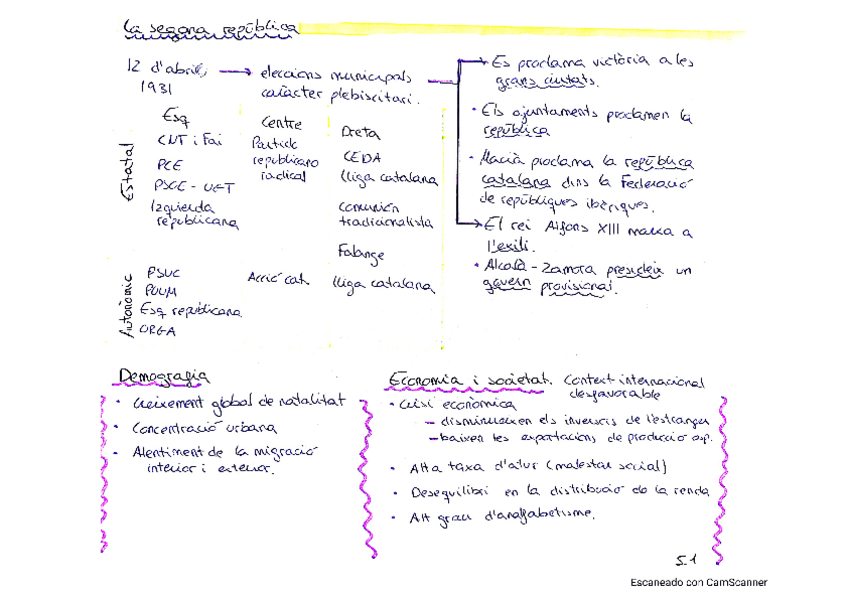 La segona república
12 d'abril,
1931
eleccions municipals
caràcter plebiscitari.
Es proclama victòria a les
grans ciutats.
• Els ajuntaments proclamen la
república
• Macià proclama la república
catalana dins la Federació
de repúbliques ibèriques.
El rei Alfons XIII marxa a
l'exili.
• Alcalà-Zamora presideix un
govern provisional.
Estatal
Esq
CNT i Fai
PCE
PSOE - UGT
Izquierda
republicana
Centre
Partido
republicano
radical
Dreta
CEDA
Lliga catalana
Comunión
tradicionalista
Falange
Autonòmic
PSUC
POUM
Esq republicana
ORGA
Acció cat.
Lliga catalana
Demografia
• Creixement global de natalitat
• Concentració urbana
• Alentiment de la migració
interior i exterior.
Economia i societat. Context internacional
desfavorable
• Crisi econòmica
- disminueixen els inversors de l'estranger
- baixen les exportacions de producció esp.
• Alta taxa d'atur (malestar social)
• Desequilibri en la distribució de la renda
• Alt grau d'analfabetisme.
5.1
Escaneado con CamScanner